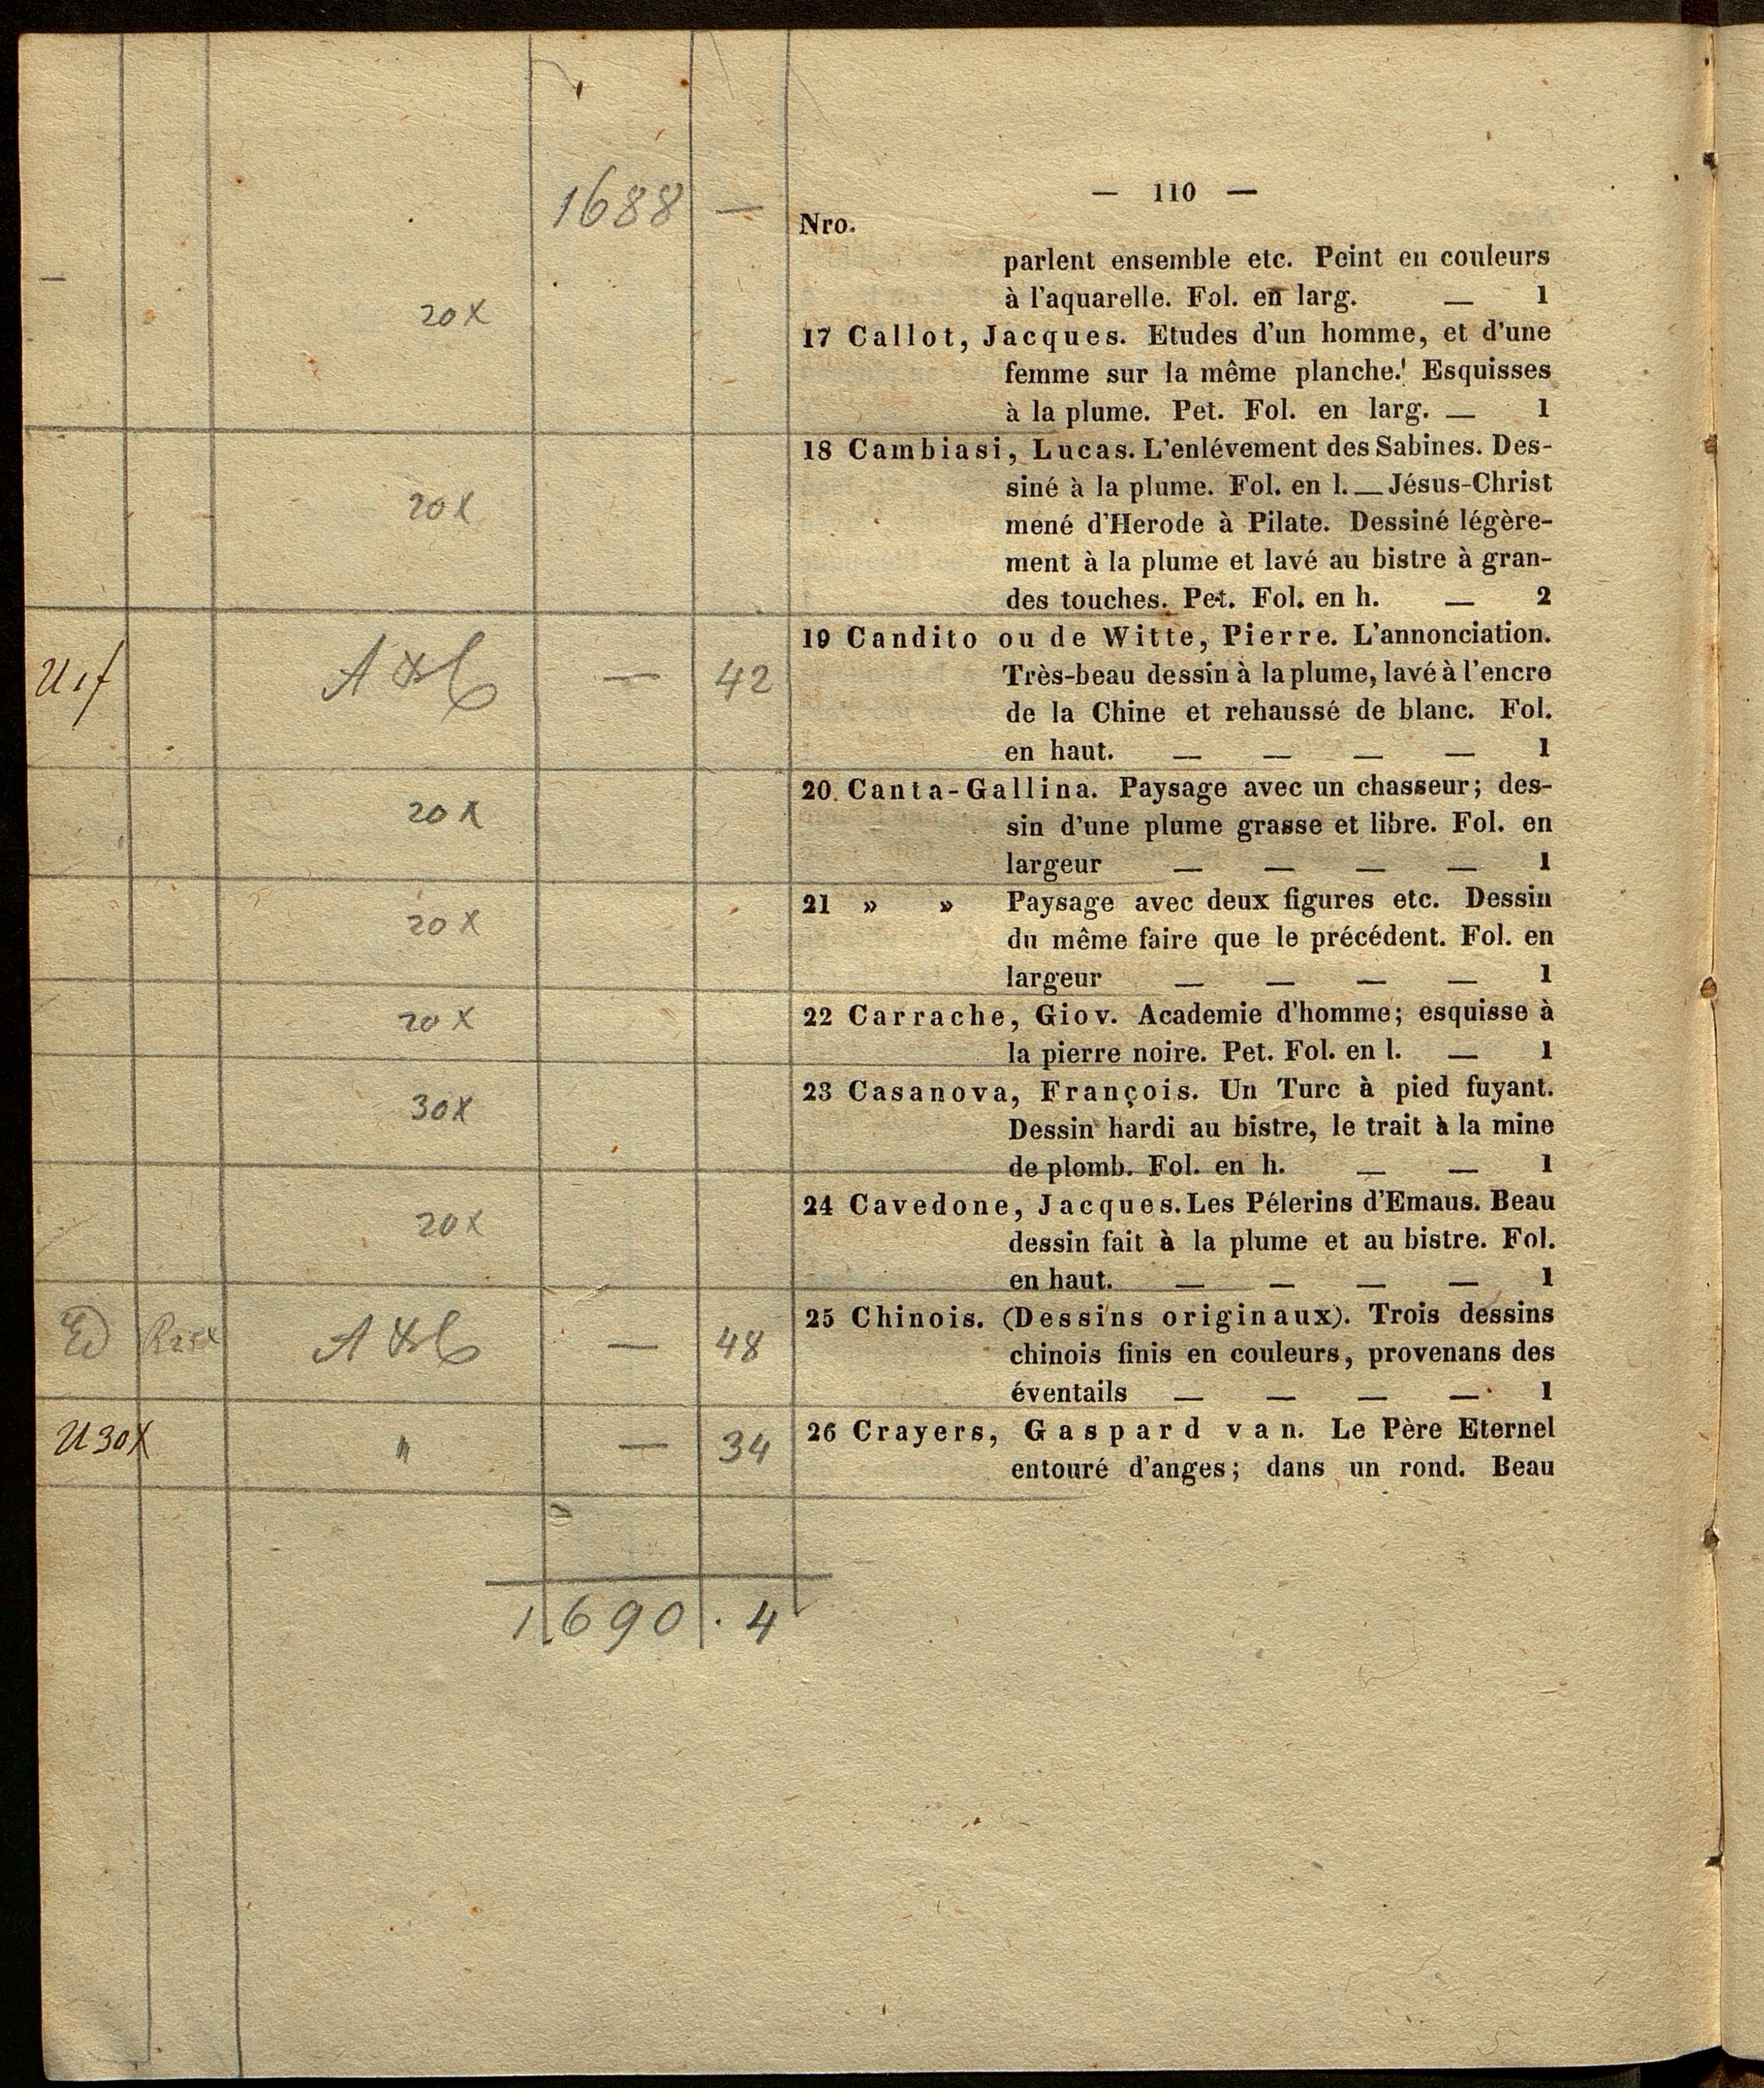 — 110 —
1688 —
Nro.
parlent ensemble etc. Peint en couleurs
à l'aquarelle. Fol. en larg. — 1
20 x
17 Callot, Jacques. Etudes d'un homme, et d'une
femme sur la même planche.' Esquisses
à la plume. Pet. Fol. en larg. — 1
18 Cambiasi, Lucas. L'enlévement des Sabines. Des-
siné à la plume. Fol. en l. — Jésus-Christ
20 x
mené d'Herode à Pilate. Dessiné légère-
ment à la plume et lavé au bistre à gran-
des touches. Pet. Fol. en h. — 2
19 Candito ou de Witte, Pierre. L'annonciation.
— 42
Très-beau dessin à la plume, lavé à l'encre
de la Chine et rehaussé de blanc. Fol.
en haut. — — — — 1
20. Canta-Gallina. Paysage avec un chasseur; des-
20 x
sin d'une plume grasse et libre. Fol. en
largeur — — — — 1
21 » » Paysage avec deux figures etc. Dessin
20 x
du même faire que le précédent. Fol. en
largeur — — — — 1
20 x
22 Carrache, Giov. Academie d'homme; esquisse à
la pierre noire. Pet. Fol. en l. — 1
23 Casanova, François. Un Turc à pied fuyant.
30 x
Dessin hardi au bistre, le trait à la mine
de plomb. Fol. en h. — — 1
24 Cavedone, Jacques. Les Pélerins d'Emaus. Beau
20 x
dessin fait à la plume et au bistre. Fol.
en haut. — — — — 1
25 Chinois. (Dessins originaux). Trois dessins
— 48
chinois finis en couleurs, provenans des
éventails — — — — 1
26 Crayers, Gaspard van. Le Père Eternel
30x " — 34
entouré d'anges; dans un rond. Beau
1690 . 4